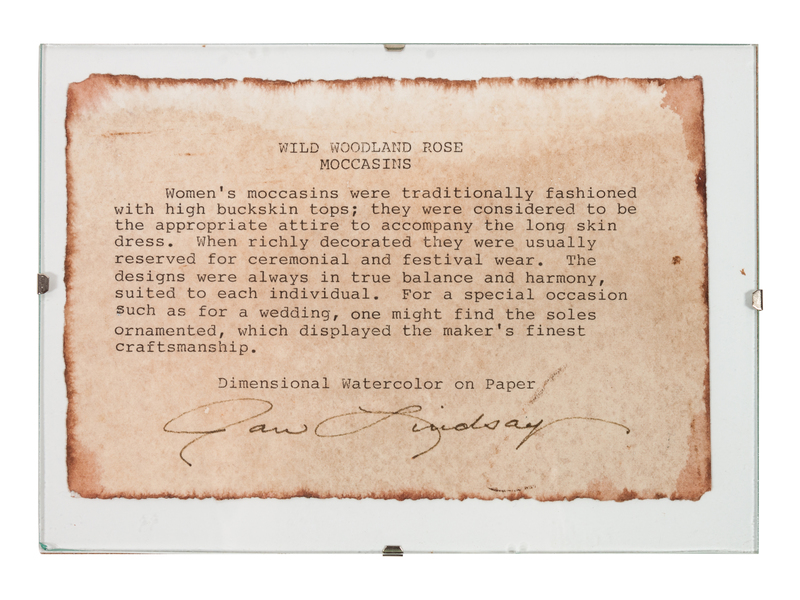 WILD WOODLAND ROSE
MOCCASINS
Women's moccasins were traditionally fashioned
with high buckskin tops; they were considered to be
the appropriate attire to accompany the long skin
dress. When richly decorated they were usually
reserved for ceremonial and festival wear. The
designs were always in true balance and harmony,
suited to each individual. For a special occasion
such as for a wedding, one might find the soles
ornamented, which displayed the maker's finest
craftsmanship.
Dimensional Watercolor on Paper
Jan Lindsay